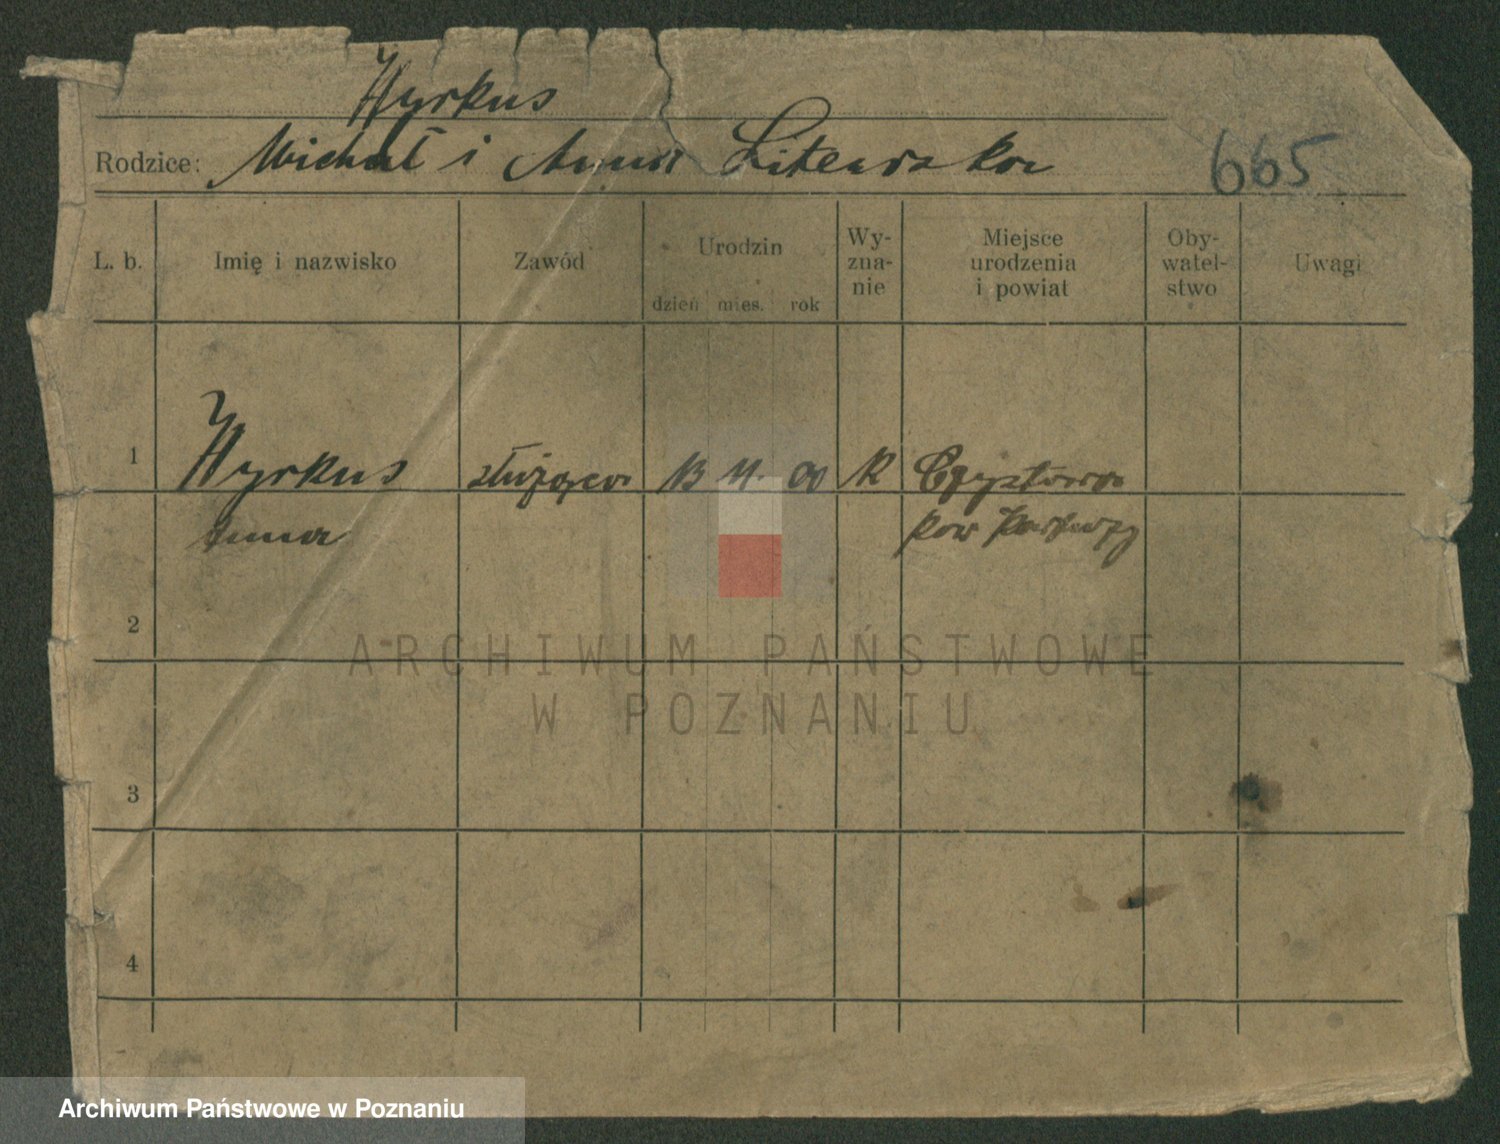 Hyrkus
Rodzice: Michał i Anna Literska
665
L. b. Imię i nazwisko Zawód Urodzin dzień mies. rok Wy-zna-nie Miejsce urodzenia i powiat Oby-watel-stwo Uwagi
1 Hyrkus służąca 13 11. 00 K
Anna pow
2
ARCHIWUM PAŃSTWOWE
W POZNANIU
3
4
Archiwum Państwowe w Poznaniu